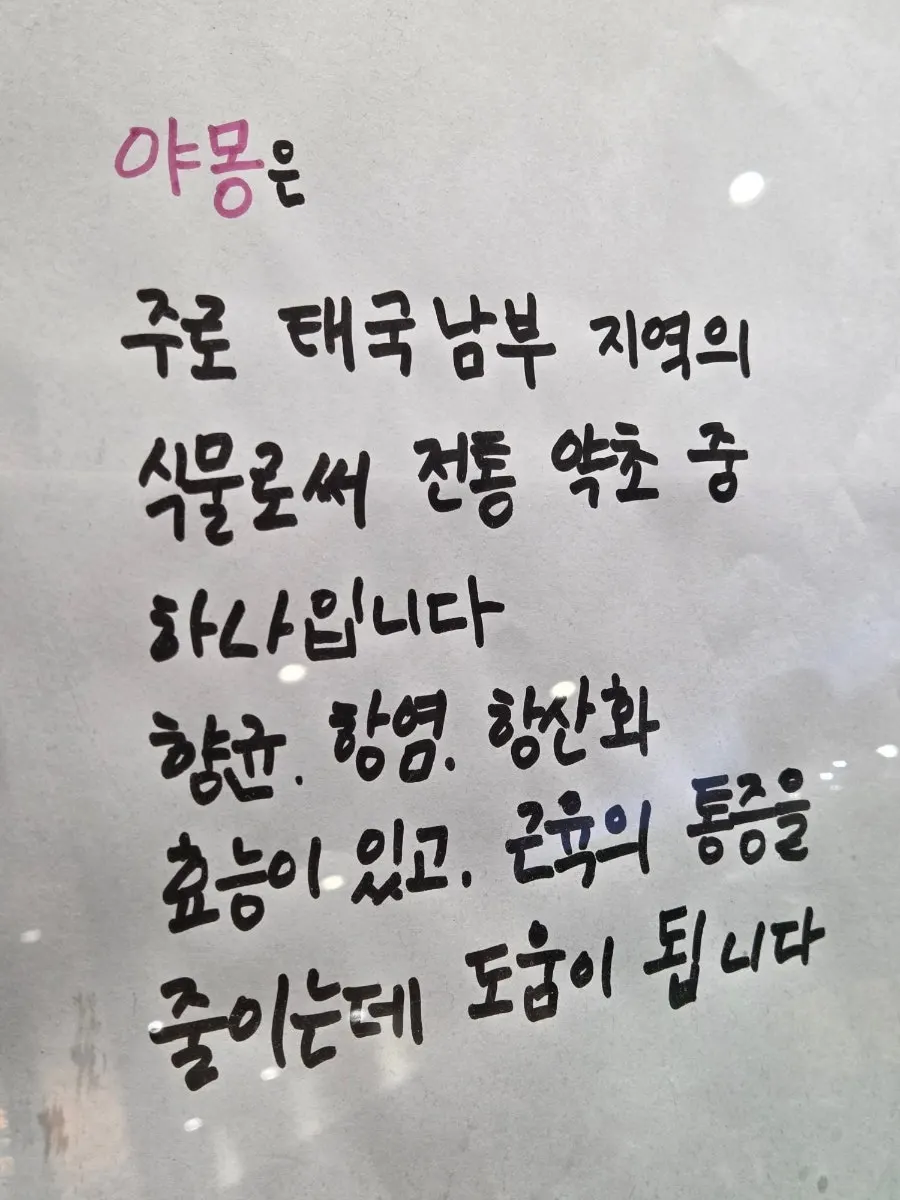 야몽은
주로 태국 남부 지역의
식물로써 전통 약초 중
하나입니다
향균. 항염. 항산화
효능이 있고. 근육의 통증을
줄이는데 도움이 됩니다